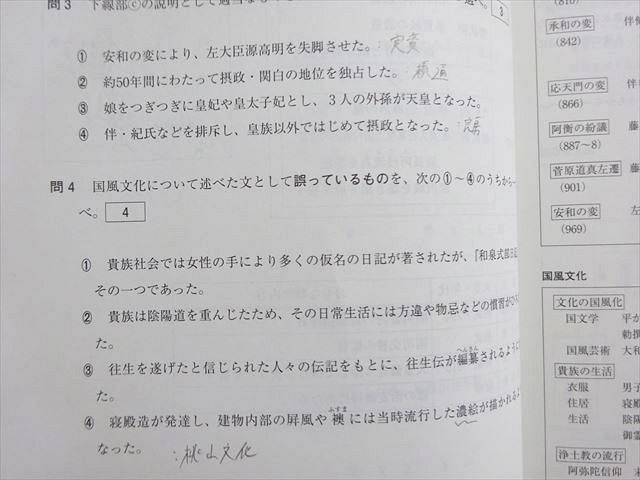 問3 下線部ⓒの説明として適当なもの
3
① 安和の変により、左大臣源高明を失脚させた。
② 約50年間にわたって摂政・関白の地位を独占した。:頼通
③ 娘をつぎつぎに皇妃や皇太子妃とし、3人の外孫が天皇となった。
④ 伴・紀氏などを排斥し、皇族以外ではじめて摂政となった。:良房
問4 国風文化について述べた文として誤っているものを、次の①～④のうちから一
べ。 4
① 貴族社会では女性の手により多くの仮名の日記が著されたが、『和泉式部日記
その一つであった。
② 貴族は陰陽道を重んじたため、その日常生活には方違や物忌などの慣習が
た。
③ 往生を遂げたと信じられた人々の伝記をもとに、往生伝が編纂されるように
へんさん
た。
④ 寝殿造が発達し、建物内部の屏風や襖には当時流行した濃絵が描かれるよ
ふすま
なった。 :桃山文化
(810)
承和の変 伴健
(842)
応天門の変 伴
(866)
阿衡の紛議 藤
(887～8)
菅原道真左遷 藤
(901)
安和の変 左
(969)
国風文化
文化の国風化
国文学 平か
勅撰
国風芸術 大和
貴族の生活
衣服 男子
住居 寝殿
生活 陰陽
御霊
浄土教の流行
阿弥陀信仰 末